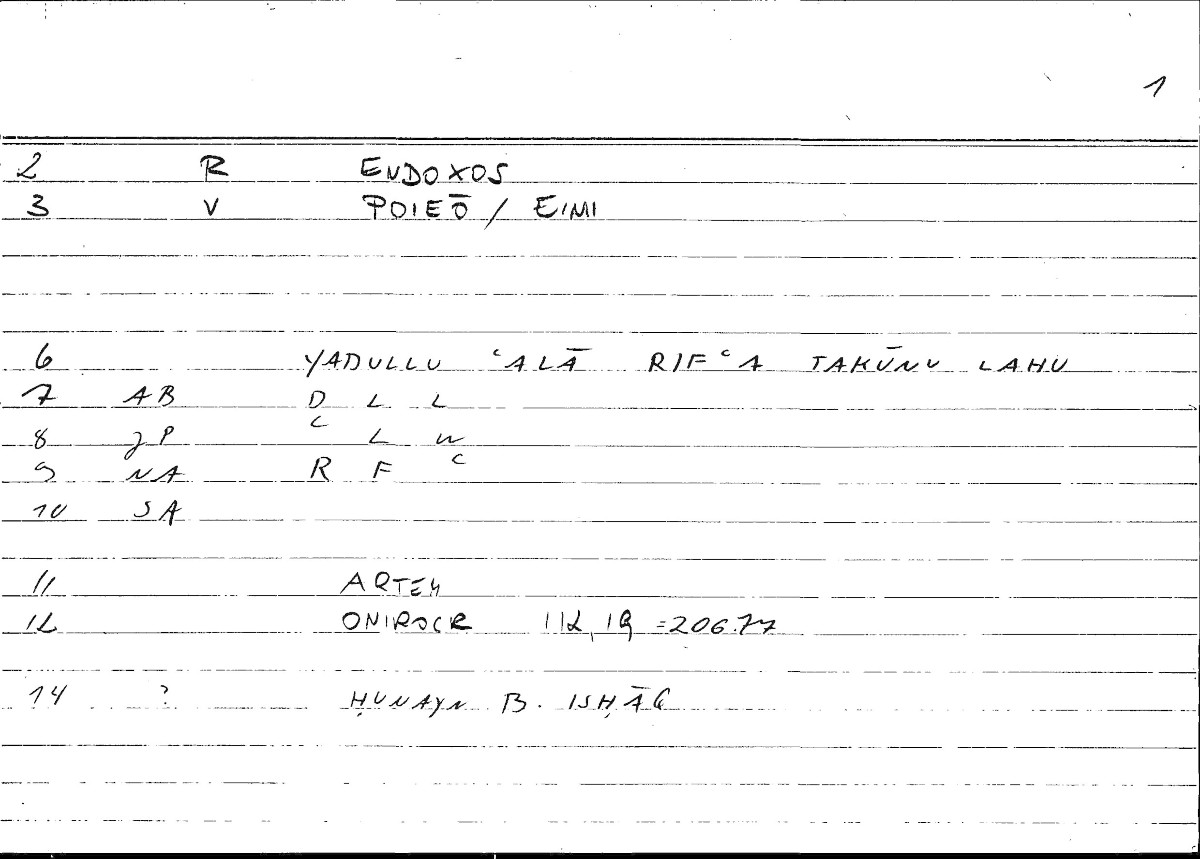 1
2 R ENDOXOS
3 V POIEŌ / EIMI
6 YADULLU ʿALĀ RIFʿA TAKŪNU LAHU
7 AB D L L
8 JP ʿ L W
9 NA R F ʿ
10 SA
11 ARTEM
12 ONIROCR 112,19 =206.77
14 ? ḤUNAYN B. ISḤĀQ